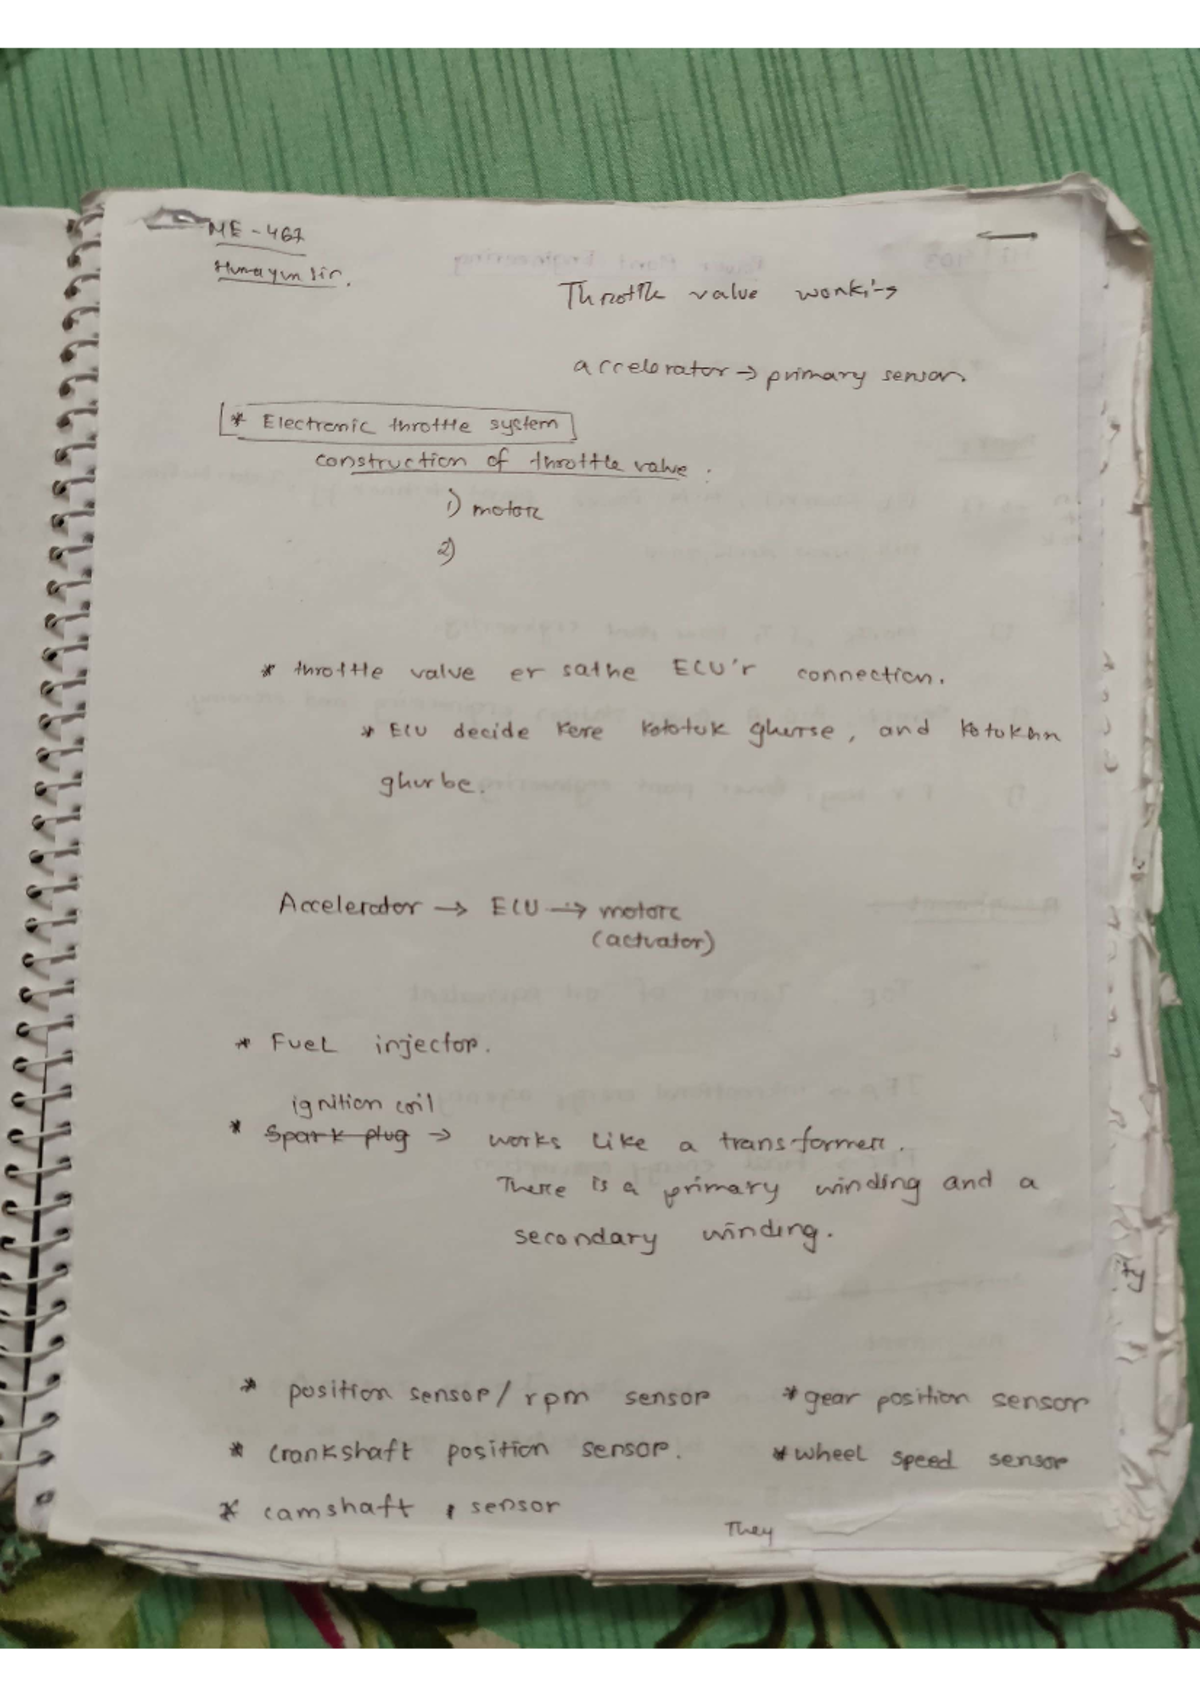 ME-467
Humayun Sir.
Throttle value working
accelerator → primary sensor.
* Electronic throttle system
construction of throttle valve.
1) motore
2)
* throttle value er sathe ECU'r connection.
* ECU decide kere kototuk ghurse, and kotukhn
ghurbe.
Accelerator → ECU → motore
(actuator)
* Fuel injector.
ignition coil
* Spark plug → works like a transformer.
There is a primary winding and a
secondary winding.
* position sensor / rpm sensor * gear position sensor
* crankshaft position sensor. * wheel speed sensor
* camshaft , sensor
They